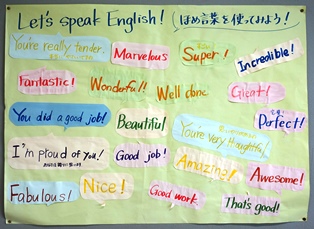 Let's speak English! ほめ言葉を使ってみよう!
You're really tender.
Marvelous
Super!
Incredible!
Fantastic!
Wonderful!!
Well done
Great!
You did a good job!
Beautiful
You're very thoughtful
Perfect!
I'm proud of you!
Good job!
Amazing!
Awesome!
Fabulous!
Nice!
Good work
That's good!